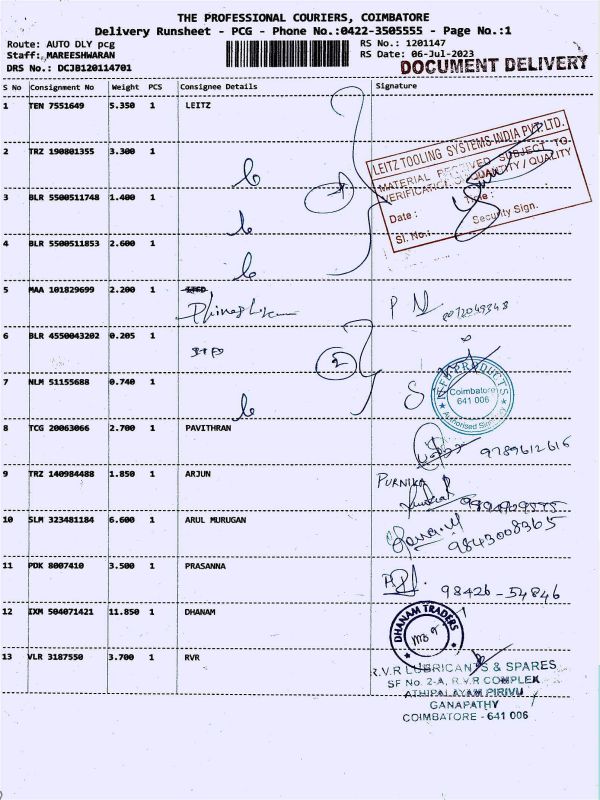 THE PROFESSIONAL COURIERS, COIMBATORE
Delivery Runsheet - PCG - Phone No.:0422-3505555 - Page No.:1
Route: AUTO DLY pcg
Staff: MAREESHWARAN
DRS No.: DCJB120114701
RS No.: 1201147
RS Date: 06-Jul-2023
DOCUMENT DELIVERY
S No Consignment No Weight PCS Consignee Details Signature
1 TEN 7551649 5.350 1 LEITZ
LEITZ TOOLING SYSTEMS INDIA PVT. LTD.
MATERIAL RECEIVED SUBJECT TO
VERIFICATION QUANTITY / QUALITY
Date : Time :
Sl. No.: Security Sign.
2 TRZ 190801355 3.300 1
3 BLR 5500511748 1.400 1
4 BLR 5500511853 2.600 1
5 MAA 101829699 2.200 1
6 BLR 4550043202 0.205 1
2
7 NLM 51155688 0.740 1
PRODUCTS
Coimbatore
641 006
8 TCG 20063066 2.700 1 PAVITHRAN
9789612616
9 TRZ 140984488 1.850 1 ARJUN
PURNIKA
10 SLM 323481184 6.600 1 ARUL MURUGAN
9843008365
11 PDK 8007410 3.500 1 PRASANNA
98426-54846
12 IXM 504071421 11.850 1 DHANAM
DHANAM TRADERS
13 VLR 3187550 3.700 1 RVR
R.V.R LUBRICANTS & SPARES
SF No. 2-A, R.V.R COMPLEX
ATHIPALAYAM PIRIVU
GANAPATHY
COIMBATORE - 641 006